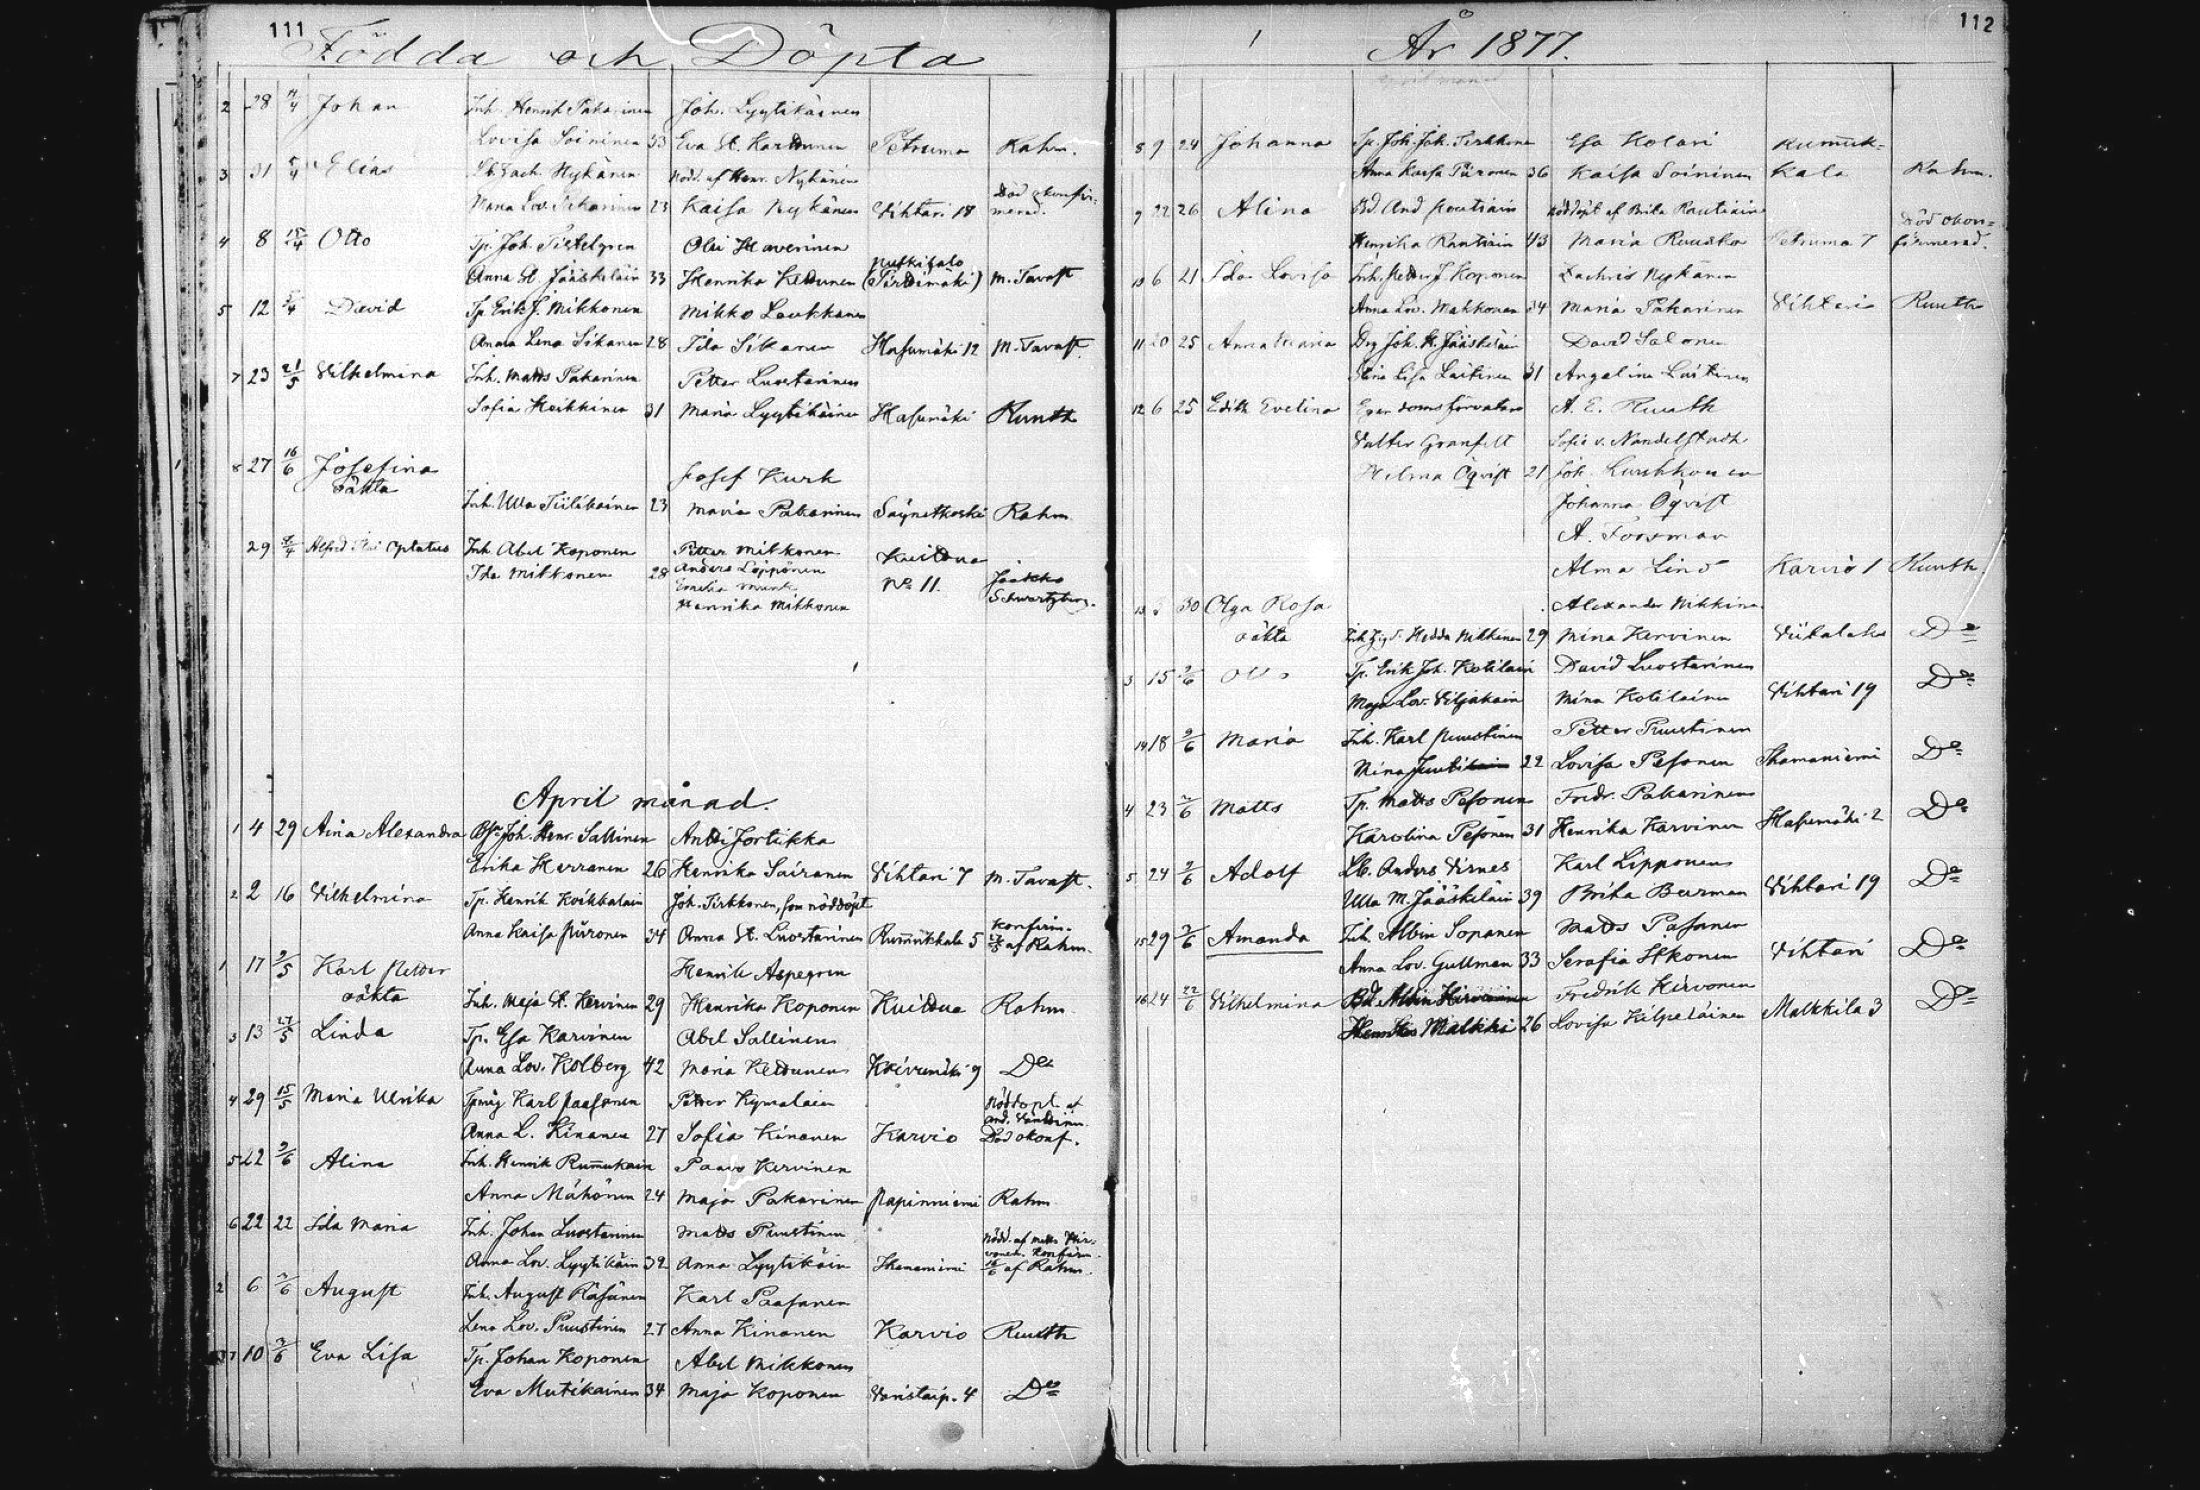 111
Födda och Döpta
2 28 11/4 Johan Inh. Henrik Pakarinen Joh. Lyytikäinen
Lovisa Soininen 33 Eva St. Karttunen Petruma Rahm.
3 31 5/4 Elias Lb. Zach. Nykänen Nödd. af Henr. Nykänen
Maria Lov. Pakarinen 23 Kaisa Nykänen Vihtari 18 Död okonfirmerad.
4 8 15/4 Otto Tp. Joh. Tistelgren Olli Haverinen
Anna St. Jääskeläin 33 Henrika Kettunen (Pirttimäki) M. Tavast
5 12 /4 David Tp. Erik J. Mikkonen Mikko Laukkanen
Anna Lena Sikanen 28 Tilo Sikanen Hasumäki 12 M. Tavast.
7 23 21/5 Vilhelmina Inh. Matts Pakarinen Petter Luostarinen
Sofia Heikkinen 31 Maria Lyytikäinen Hasumäki Ruuth
8 27 16/6 Josefina Josef Kurk
oäkta Inh. Ulla Tiilikainen 23 Maria Pakarinen Säynetkoski Rahm
29 /4 Alfred Optatus Inh. Abel Koponen Petter Mikkonen Kuittua
Ida Mikkonen 28 Anders Lipponen No 11. Jaakko
Emelia Munk Schwartzberg.
Henrika Mikkonen
April månad.
1 4 29 Aina Alexandra Joh. Henr. Sallinen Antti Jortikka
Erika Herranen 26 Henrika Sairanen Vihtari 7 M. Tavast.
2 2 16 Vilhelmina Tp. Henrik Koikkalain Joh. Tirkkonen, som nöddöpt
Anna Kaisa Piironen 34 Anna St. Luostarinen Rum̄ukkala 5 konfirm. af Rahm.
1 17 9/5 Karl Petter Henrik Aspegren
oäkta Inh. Maja St. Kervinen 29 Henrika Koponen Kuittua Rahm.
3 13 27/5 Linda Tp. Esa Karvinen Abel Sallinen
Anna Lov. Kolberg 42 Maria Kettunen Koivumäki 9 Do
4 29 15/5 Maria Ulrika Tpmåg Karl Paasonen Petter Kymalain Nöddopt. af
Anna L. Kinanen 27 Sofia Kinanen Karvio Död okonf.
5 22 3/6 Alina Inh. Henrik Rum̄ukain Paavo Kervinen
Anna Mähönen 24 Maja Pakarinen Papinniemi Rahm
6 22 22 Ida Maria Inh. Johan Luostarinen Matts Puustinen Nödd. af Matts Hirvonen. Konfirm.
Anna Lov. Lyytikäin 39 Anna Lyytikäin Ihamaniemi af Rahm.
2 6 3/6 August Inh. August Räsänen Karl Paasanen
Lena Lov. Puustinen 27 Anna Kinanen Karvio Ruuth
7 10 3/6 Eva Lisa Tp. Johan Koponen Abel Mikkonen
Eva Mutikainen 34 Maja Koponen Varistaip. 4 Do
112
År 1877.
April månad
8 9 24 Johanna Tp. Joh. Joh. Tirkkonen Esa Kolari Rum̄uk-
Anna Kaisa Piironen 36 Kaisa Soininen kala Rahm.
9 22 26 Alina Bd. And Routiain Nöddöpt af Brita Rautiain
Henrika Rautiain 43 Maria Ruusko Petruma 7 Död okonfirmerad.
10 6 21 Ida Lovisa Inh. Petter J. Koponen Zachris Nykänen
Anna Lov. Makkonen 34 Maria Pakarinen Vihtari Ruuth
11 20 25 Anna Maria Drg Joh. H. Jääskeläin David Salonen
Stina Lisa Laitinen 31 Angelina Laitinen
12 6 25 Edith Evelina Egendomsförvaltare A. E. Ruuth
Valter Granfelt Sofie v. Nandelstadh
Helma Öqvist 21 Joh. Kuukkonen
Johanna Öqvist
A. Forsman
Alma Lind Karvio 1 Ruuth.
13 30 Olga Rosa Alexander Nikkinen
oäkta Hedda Nikkinen 29 Mina Kervinen Viitalaks Do
3 15 3/6 Otto Tp. Erik Joh. Kotilain David Luostarinen
Maja Lov. Viljakain Mina Kotilainen Vihtari 19 Do
14 18 3/6 Maria Inh. Karl Puustinen Petter Puustinen
Mina 22 Lovisa Pesonen Ihamaniemi Do
4 23 3/6 Matts Tp. Matts Pesonen Fredr. Pakarinen
Karolina Pesonen 31 Henrika Karvinen Hasumäki 2 Do
5 24 3/6 Adolf Lb. Anders Virnes Karl Lipponen
Ulla M. Jääskeläin 39 Brita Burman Vihtari 19 Do
15 29 3/6 Amanda Inh. Albin Sopanen Matts Pasanen
Anna Lov. Gullman 33 Serafia Ikonen Vihtari Do
16 24 22/6 Vilhelmina Bd. Albin Hirvonen Fredrik Hirvonen
Henrika Malkki 26 Lovisa Kilpeläinen Malkkila 3 Do